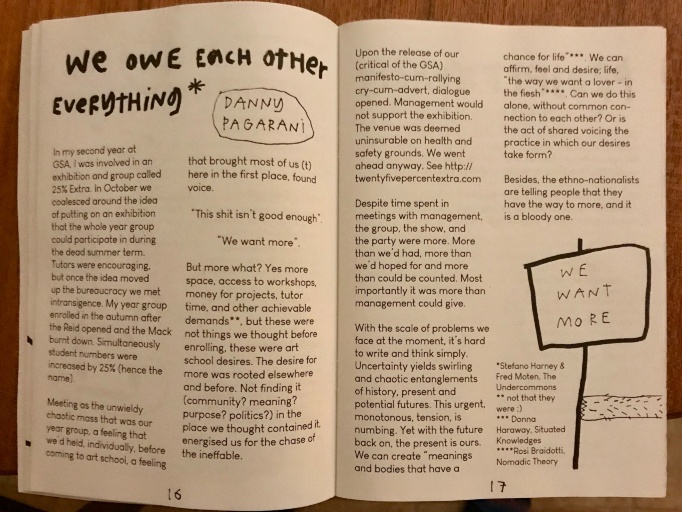 WE OWE EACH OTHER
EVERYTHING*
DANNY
PAGARANI
In my second year at
GSA, i was involved in an
exhibition and group called
25% Extra. In October we
coalesced around the idea
of putting on an exhibition
that the whole year group
could participate in during
the dead summer term.
Tutors were encouraging,
but once the idea moved
up the bureaucracy we met
intransigence. My year group
enrolled in the autumn after
the Reid opened and the Mack
burnt down. Simultaneously
student numbers were
increased by 25% (hence the
name).
Meeting as the unwieldy
chaotic mass that was our
year group, a feeling that
we'd held, individually, before
coming to art school, a feeling
that brought most of us (t)
here in the first place, found
voice.
"This shit isn't good enough".
"We want more".
But more what? Yes more
space, access to workshops,
money for projects, tutor
time, and other achievable
demands**, but these were
not things we thought before
enrolling, these were art
school desires. The desire for
more was rooted elsewhere
and before. Not finding it
(community? meaning?
purpose? politics?) in the
place we thought contained it,
energised us for the chase of
the ineffable.
16
Upon the release of our
(critical of the GSA)
manifesto-cum-rallying
cry-cum-advert, dialogue
opened. Management would
not support the exhibition.
The venue was deemed
uninsurable on health and
safety grounds. We went
ahead anyway. See http://
twentyfivepercentextra.com
Despite time spent in
meetings with management,
the group, the show, and
the party were more. More
than we'd had, more than
we'd hoped for and more
than could be counted. Most
importantly it was more than
management could give.
With the scale of problems we
face at the moment, it's hard
to write and think simply.
Uncertainty yields swirling
and chaotic entanglements
of history, present and
potential futures. This urgent,
monotonous, tension, is
numbing. Yet with the future
back on, the present is ours.
We can create "meanings
and bodies that have a
chance for life"***. We can
affirm, feel and desire; life,
"the way we want a lover - in
the flesh"****. Can we do this
alone, without common con-
nection to each other? Or is
the act of shared voicing the
practice in which our desires
take form?
Besides, the ethno-nationalists
are telling people that they
have the way to more, and it
is a bloody one.
WE
WANT
MORE
*Stefano Harney &
Fred Moten, The
Undercommons
** not that they
were ;)
*** Donna
Haraway, Situated
Knowledges
****Rosi Braidotti,
Nomadic Theory
17